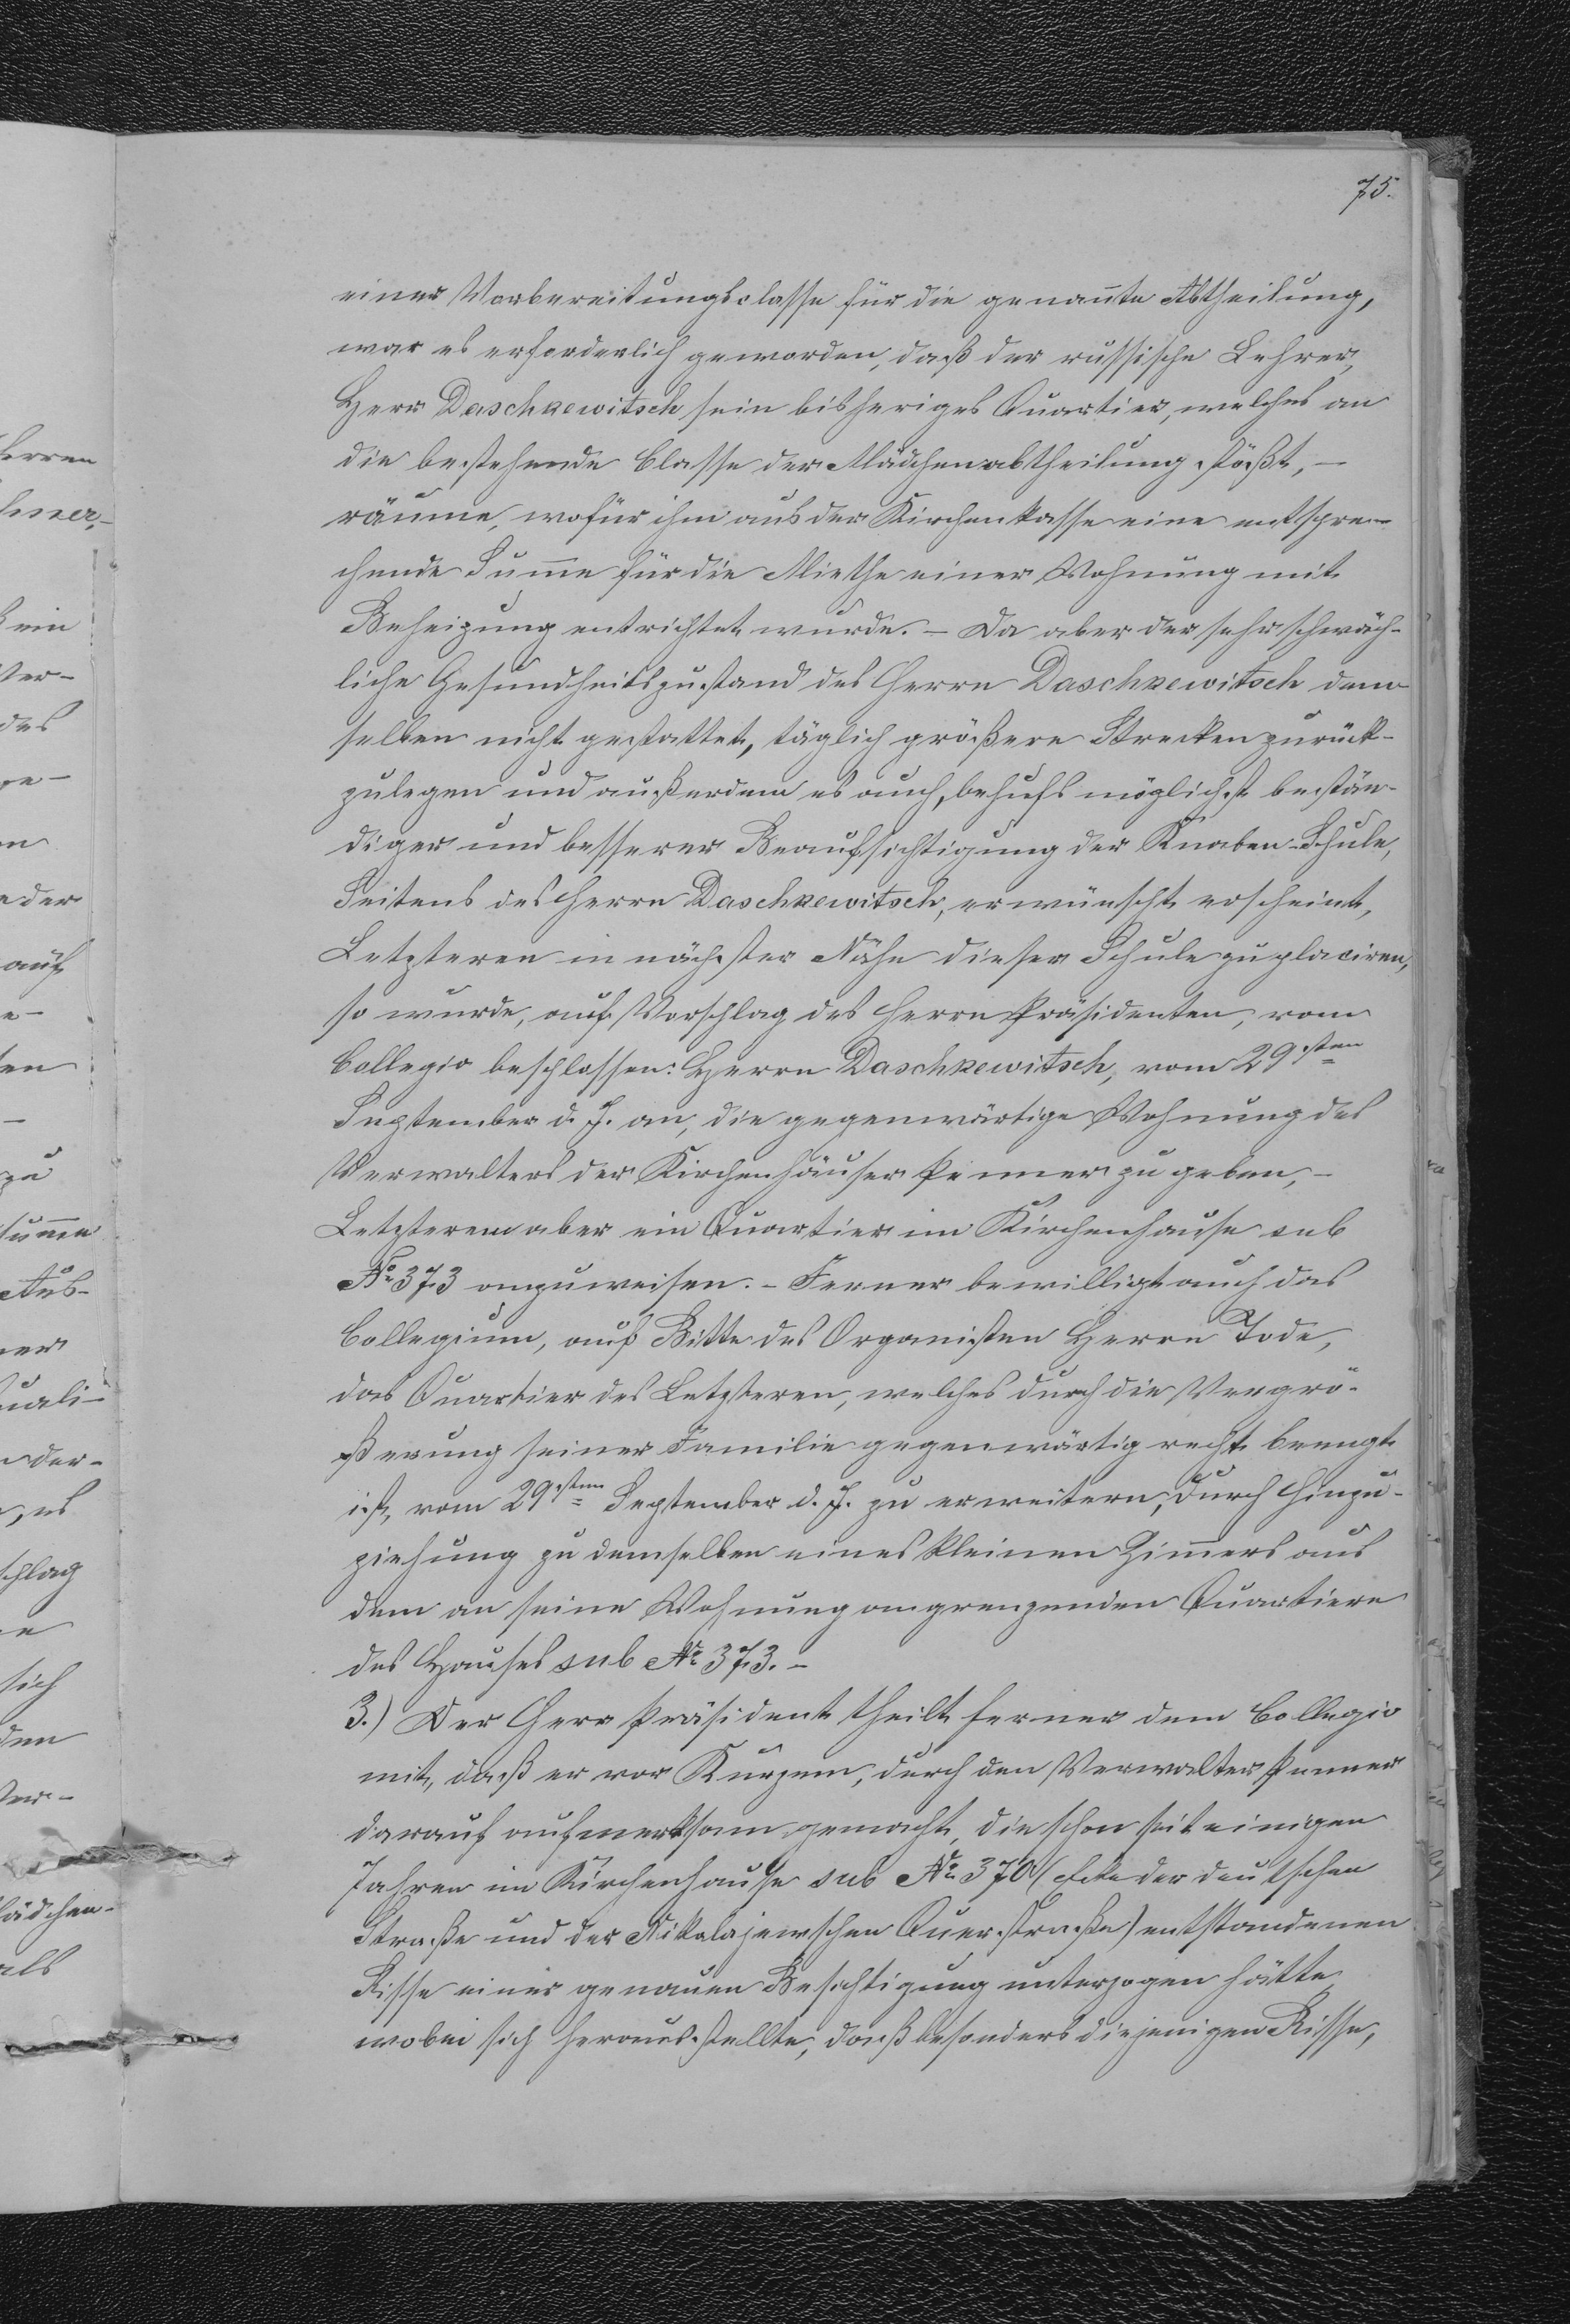 75.
einer Vorbereitungsclasse für die genañte Abtheilung,
war es erforderlich geworden, daß der russische Lehrer,
Herr Daschkewitsch sein bisheriges Quartier, welches an
die bestehende Classe der Mädchenabtheilung stößt, —
räume, wofür ihm aus der Kirchenkasse eine entspre-
chende Sum̄e für die Miethe einer Wohnung mit
Beheizung entrichtet wurde. — Da aber der sehr schwäch-
liche Gesundheitszustand des Herrn Daschkewitsch dem-
selben nicht gestattet, täglich größere Strecken zurück-
zulegen und außerdem es auch, behufs möglichst bestän-
diger und besserer Beaufsichtigung der Knaben-Schule,
Seitens des Herrn Daschkewitsch, erwünscht erscheint,
Letzteren in nächster Nähe dieser Schule zu placiren,
so wurde, auf Vorschlag des Herrn Präsidenten, vom
Collegio beschlossen: Herrn Daschkewitsch, vom 29sten
September d. J. an, die gegenwärtige Wohnung des
Verwalters der Kirchenhäuser Penner zu geben, —
Letzterem aber ein Quartier im Kirchenhause sub
№ 373 anzuweisen. — Ferner bewilligt auch das
Collegium, auf Bitte des Organisten Herrn Tode,
das Quartier des Letzteren, welches durch die Vergrö-
ßerung seiner Familie gegenwärtig recht beengt
ist, vom 29sten September d. J. zu erweitern, durch Hinzu-
ziehung zu demselben eines kleinen Zim̄ers aus
dem an seine Wohnung angrenzenden Quartiere
des Hauses sub № 373. —
3.) Der Herr Präsident theilt ferner dem Collegio
mit, daß er vor Kurzem, durch den Verwalter Penner
darauf aufmerksam gemacht, die schon seit einigen
Jahren im Kirchenhause sub № 370 (Ecke der deutschen
Straße und der Nikolajewschen Querstraße) entstandenen
Risse einer genauen Besichtigung unterzogen hätte,
wobei sich herausstellte, daß besonders diejenigen Risse,